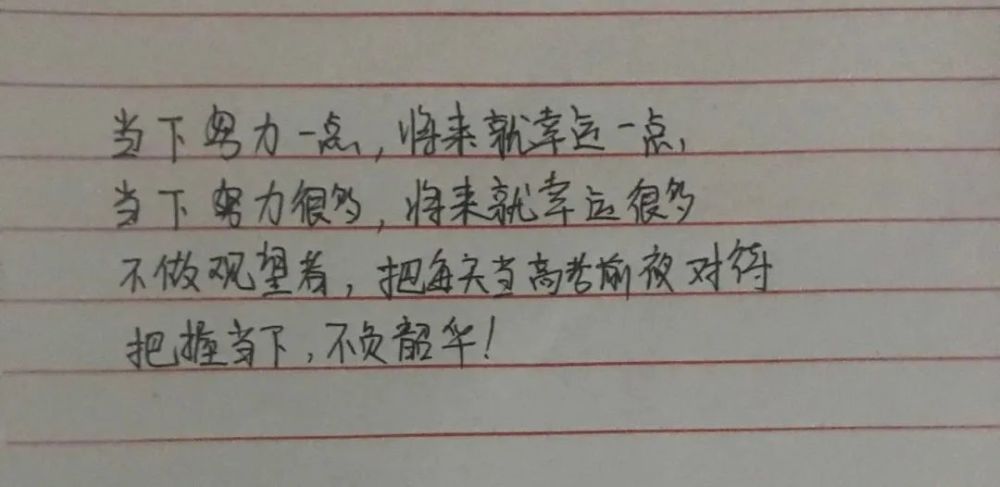 当下努力一点,将来就幸运一点,
当下努力很多,将来就幸运很多
不做观望者,把每天当高考前夜对待
把握当下,不负韶华!